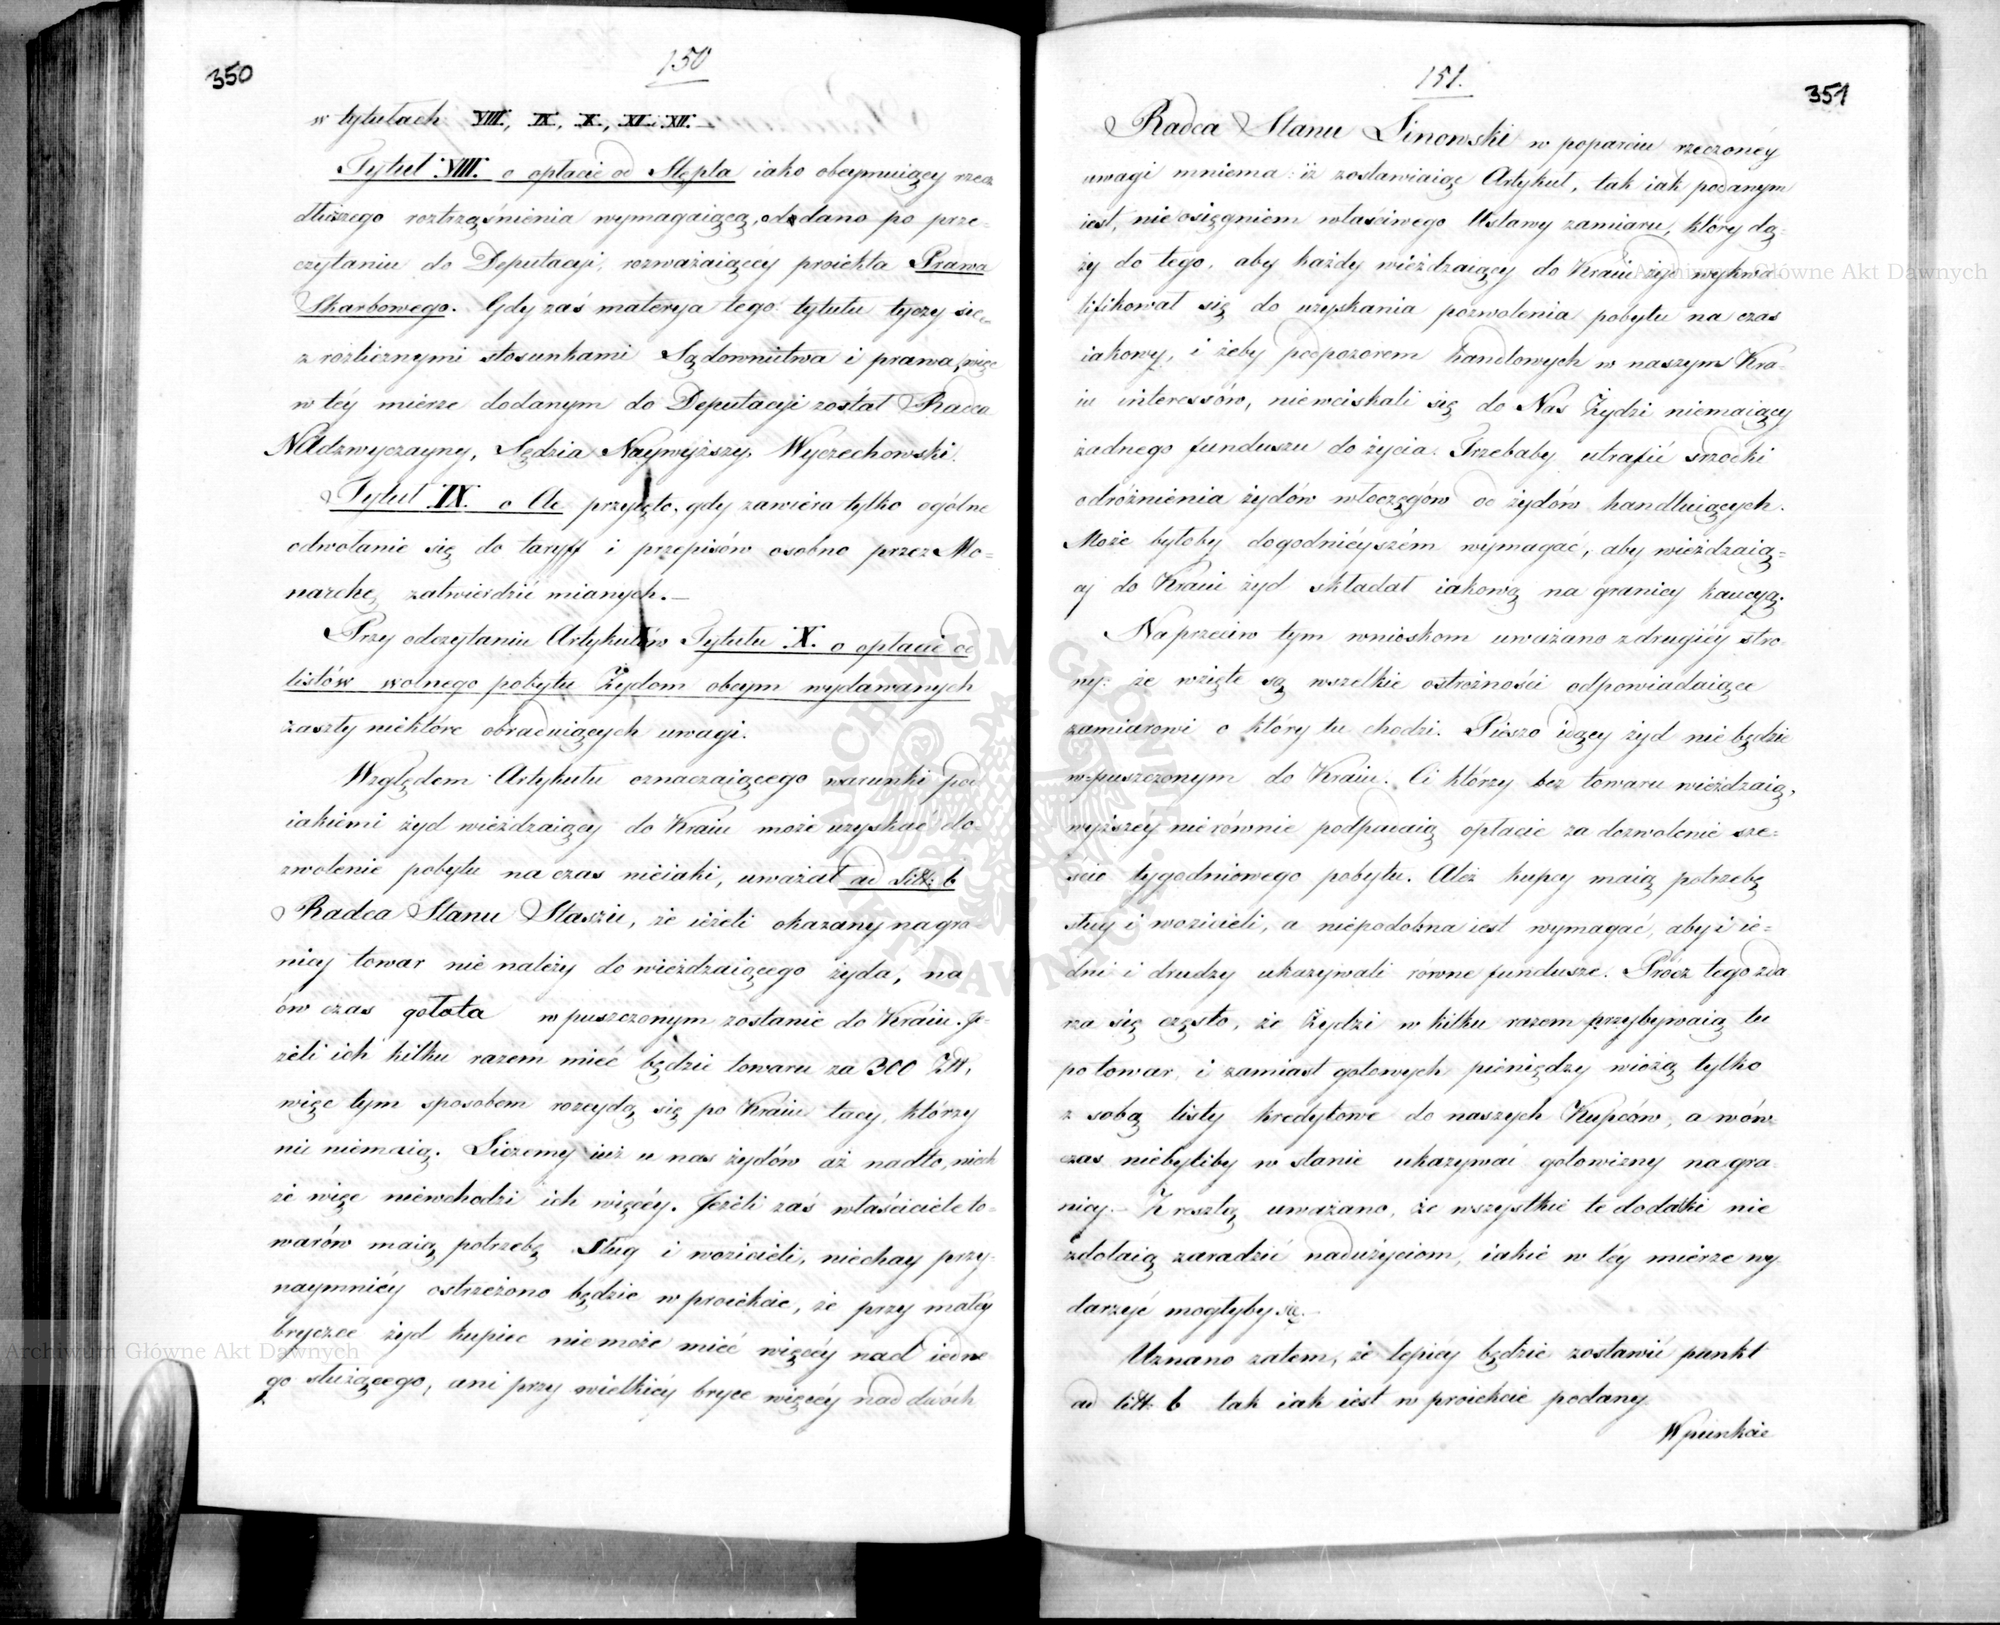 350
150
w tytułach VIII, IX, X, XI. XII.—
Tytuł VIII. o opłacie od Stępla iako obeymuiący rzecz
dłuższego roztrząśnienia wymagaiącą, oddano po prze-
czytaniu do Deputacyi, rozważaiącéy proiekta Prawa
Skarbowego. Gdy zaś materya tego tytułu tyczy się
z rozlicznymi stosunkami Sądownictwa i prawa, więc
w téy mierze dodanym do Deputacyi został Radca
Nadzwyczayny, Sędzia Naywyższy, Wyczechowski.
Tytuł IX. o Cle przyięto, gdy zawiera tylko ogólne
odwołanie się do taryff i przepisów osobno przez Mo-
narchę zatwierdzić mianych.—
Przy odczytaniu Artykułów Tytułu X. o opłacie od
listów wolnego pobytu Żydom obcym wydawanych
zaszły niektóre obraduiących uwagi.
Względem Artykułu oznaczaiącego warunki pod
iakiemi żyd wieżdzaiący do Kraiu może uzyskać do-
zwolenie pobytu na czas nieiaki, uważał ad Litt: b
Radca Stanu Staszic, że ieżeli okazany na gra-
nicy towar nie należy do wieżdzaiącego żyda, na
ów czas gołota wpuszczonym zostanie do Kraiu. Je-
żeli ich kilku razem mieć będzie towaru za 300 Złł,
więc tym sposobem rozeydą się po Kraiu tacy, którzy
nic niemaią. Liczemy iuż u nas żydów aż nadto, niech
że więc niewchodzi ich więcéy. Jeżeli zaś właściciele to-
warów maią potrzebę sług i woziciéli, niechay przy-
naymniéy ostrzeżono będzie w proiekcie, że przy małéy
bryczce żyd kupiec niemoże mieć więcéy nad iedne-
go służącego, ani przy wielkiéy bryce więcéy nad dwóch
151.
351
Radca Stanu Linowski w poparciu rzeczonéy
uwagi mniema: iż zostawiaiąc Artykuł, tak iak podanym
iest, nie osięgniem właściwego Ustawy zamiaru, który dą-
ży do tego, aby każdy wieżdzaiący do Kraiu żyd wykwa-
lifikował się do uzyskania pozwolenia pobytu na czas
iakowy, i żeby pod pozorem handlowych w naszym Kra-
iu interessów, niewciskali się do Nas Żydzi niemaiący
żadnego funduszu do życia. Trzebaby utrafić srzodki
odróżnienia żydów włóczęgów od żydów handluiących.
Może byłoby dogodniéyszém wymagać, aby wieżdzaią-
cy do Kraiu żyd składał iakową na granicy kaucyą.
Naprzeciw tym wnioskom uważano z drugiéy stro-
ny: że wzięte są wszelkie ostrożności odpowiadaiące
zamiarowi o który tu chodzi. Pieszo idący żyd nie będzie
wpuszczonym do Kraiu. Ci którzy bez towaru wieżdzaią,
wyższéy nierównie podpadaią opłacie za dozwolenie sze-
ście tygodniowego pobytu. Ależ kupcy maią potrzebę
sług i woziciéli, a niepodobna iest wymagać, aby i ie-
dni i drudzy ukazywali równe fundusze. Prócz tego zda-
rza się często, że Żydzi w kilku razem przybywaią tu
po towar, i zamiast gotowych pieniędzy wiozą tylko
z sobą listy kredytowe do naszych Kupców, a wów-
czas niebyliby w stanie ukazywać gotowizny na gra-
nicy.— Z resztą uważano, że wszystkie te dodatki nie
zdołaią zaradzić nadużyciom, iakie w téy mierze wy-
darzyć mogłyby się.—
Uznano zatem, że lepiéy będzie zostawić punkt
ad litt: b tak iak iest w proiekcie podany
W punkcie
Archiwum Główne Akt Dawnych
Archiwum Główne Akt Dawnych
ARCHIWUM GŁÓWNE AKT DAWNYCH